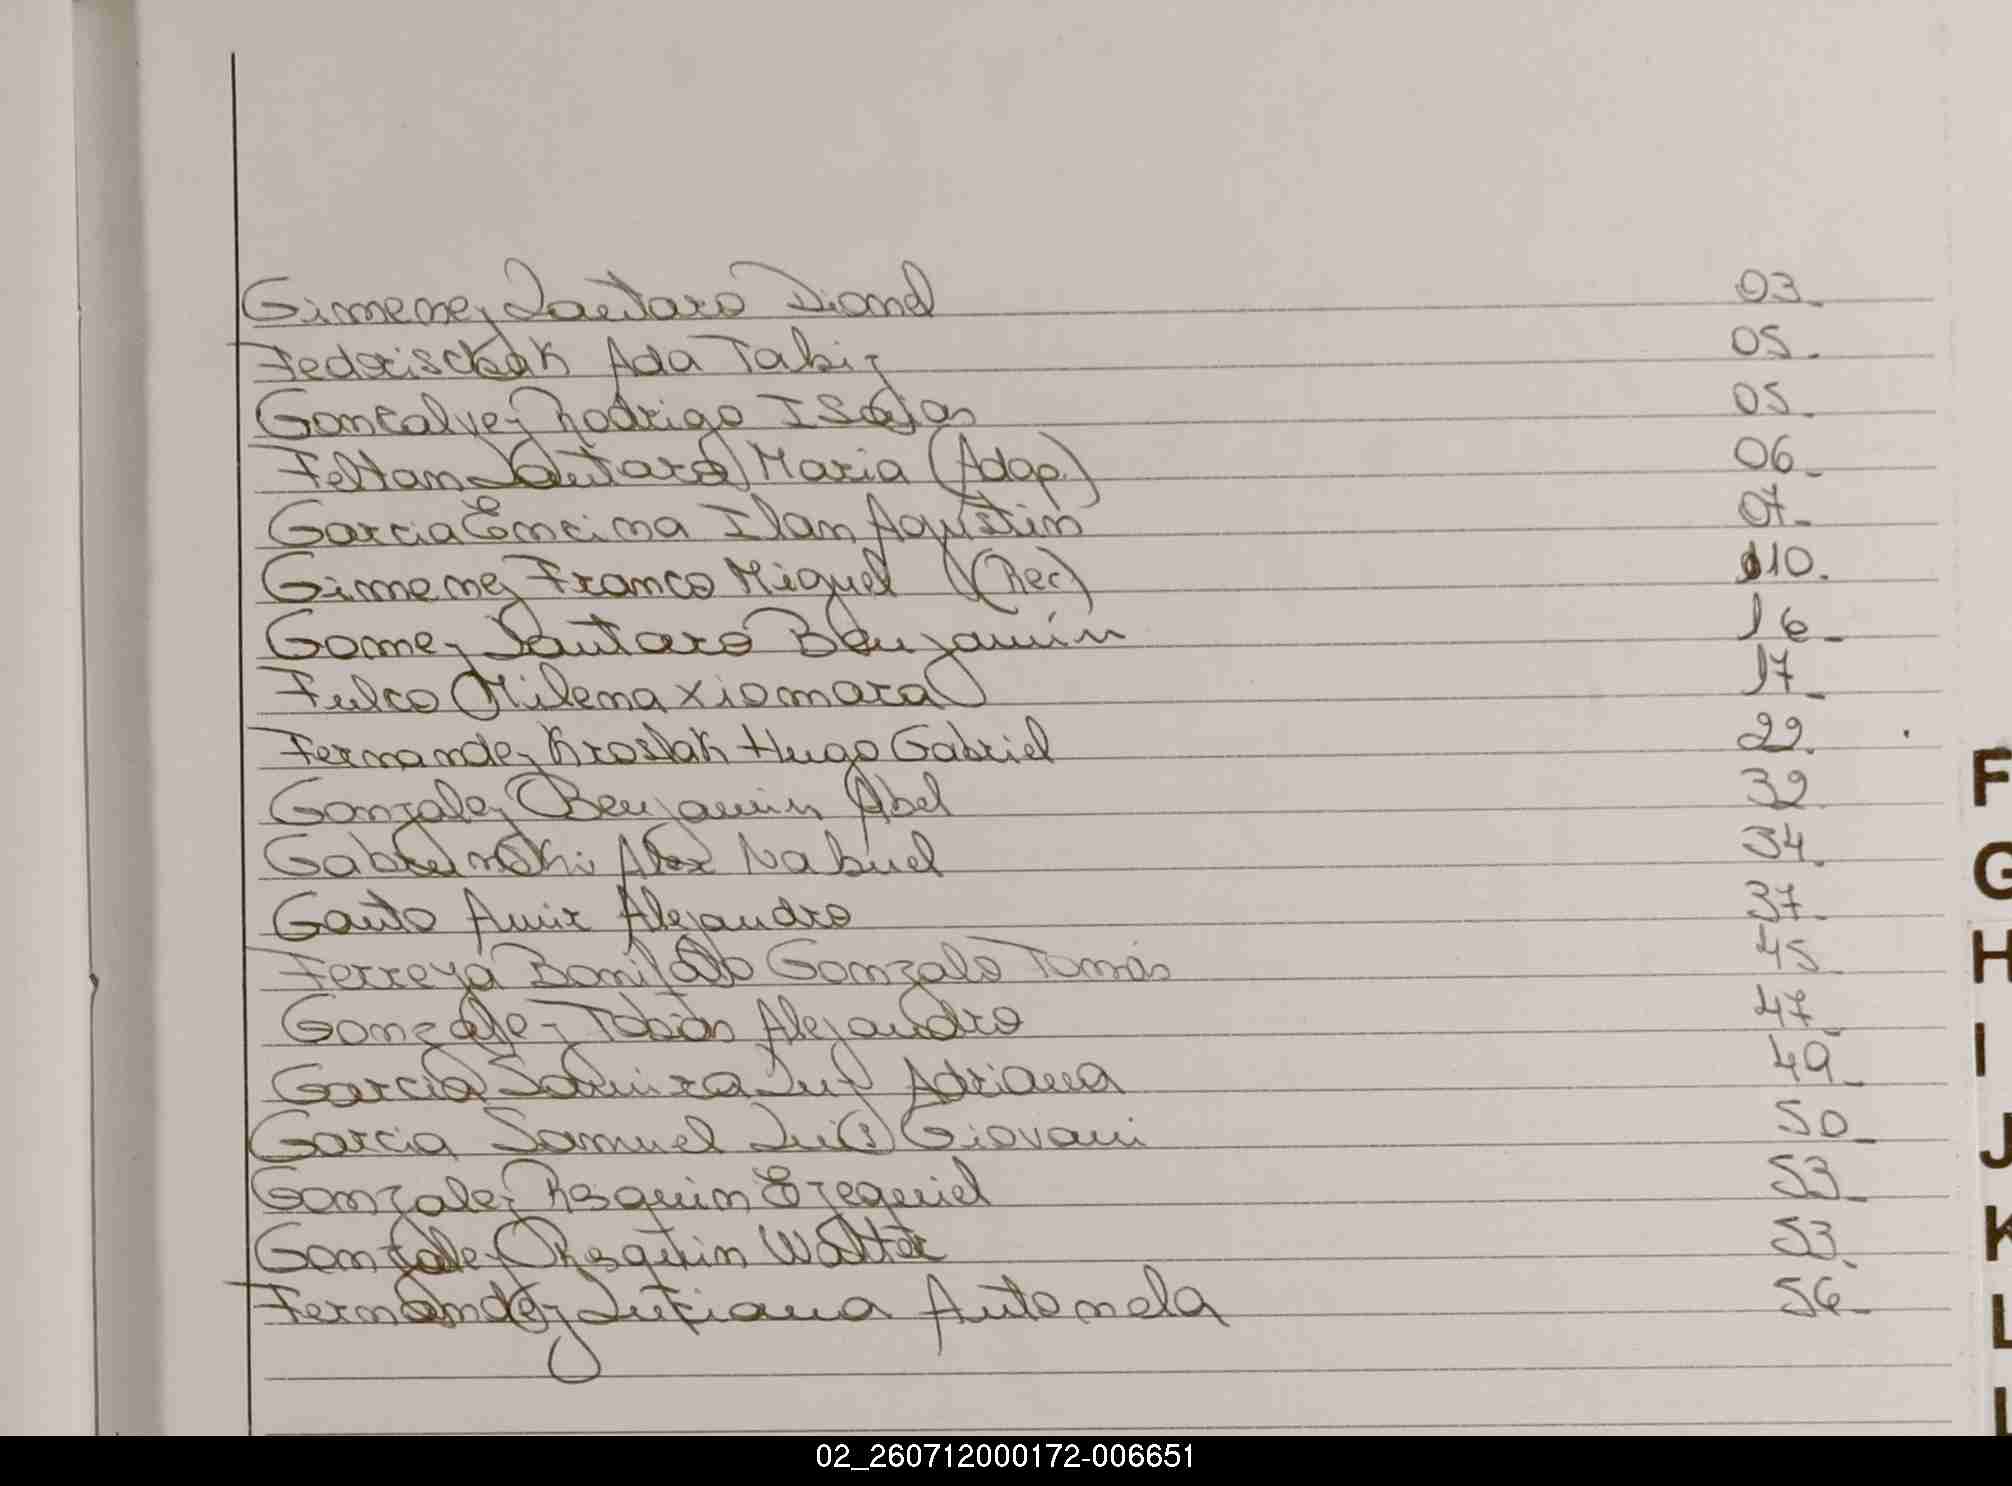 Gimenez Lautaro Dionel 03
Fedorischak Ada Tabi 05
Goncalvez Rodrigo Isaias 05
Feltan Lautaro Maria (Adop.) 06
Garcia Encina Ilan Agustin 07
Gimenez Franco Miguel (Rec) 10
Gomez Lautaro Benjamin 16
Fulco Milena Xiomara 17
Fernandez Kroslak Hugo Gabriel 22
Gonzalez Benjamin Abel 32
Alex Nahuel 34
Gauto Amir Alejandro 37
Ferreyra Bonifacio Gonzalo Tomás 45
Gonzalez Tobías Alejandro 47
Garcia Samira Luz Adriana 49
Garcia Samuel Luis Giovani 50
Gonzalez Ezequiel 53
Gonzalez Walter 53
Fernandez Luciana Antonela 56
F
G
H
I
J
K
L
02_260712000172-006651